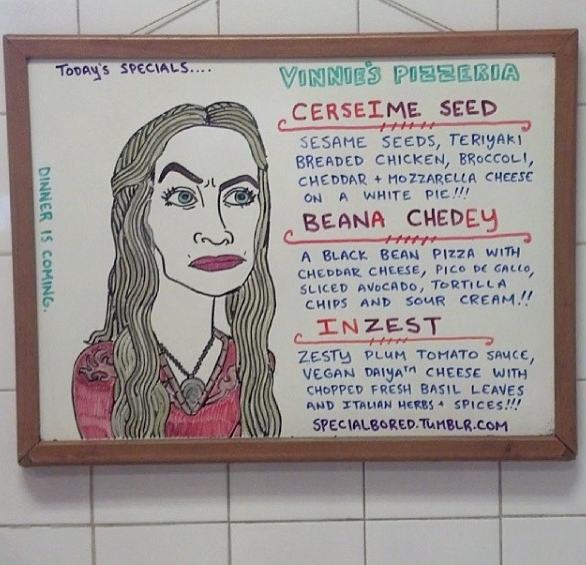 TODAY'S SPECIALS....
VINNIE'S PIZZERIA
CERSEIME SEED
SESAME SEEDS, TERIYAKI
BREADED CHICKEN, BROCCOLI,
CHEDDAR + MOZZARELLA CHEESE
ON A WHITE PIE!!!
BEANA CHEDEY
A BLACK BEAN PIZZA WITH
CHEDDAR CHEESE, PICO DE GALLO,
SLICED AVOCADO, TORTILLA
CHIPS AND SOUR CREAM!!
INZEST
ZESTY PLUM TOMATO SAUCE,
VEGAN DAIYA™ CHEESE WITH
CHOPPED FRESH BASIL LEAVES
AND ITALIAN HERBS + SPICES!!!
SPECIALBORED.TUMBLR.COM
DINNER IS COMING.